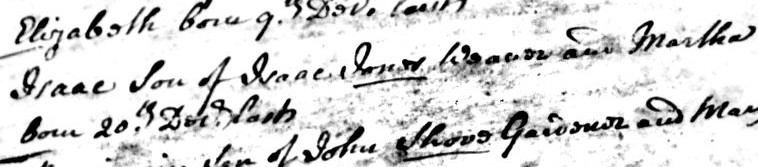 Elizabeth born 9th Decr. last
Isaac Son of Isaac Jones Weaver and Martha
born 20th Decr. last
Son of John Shove Gardener and Mary